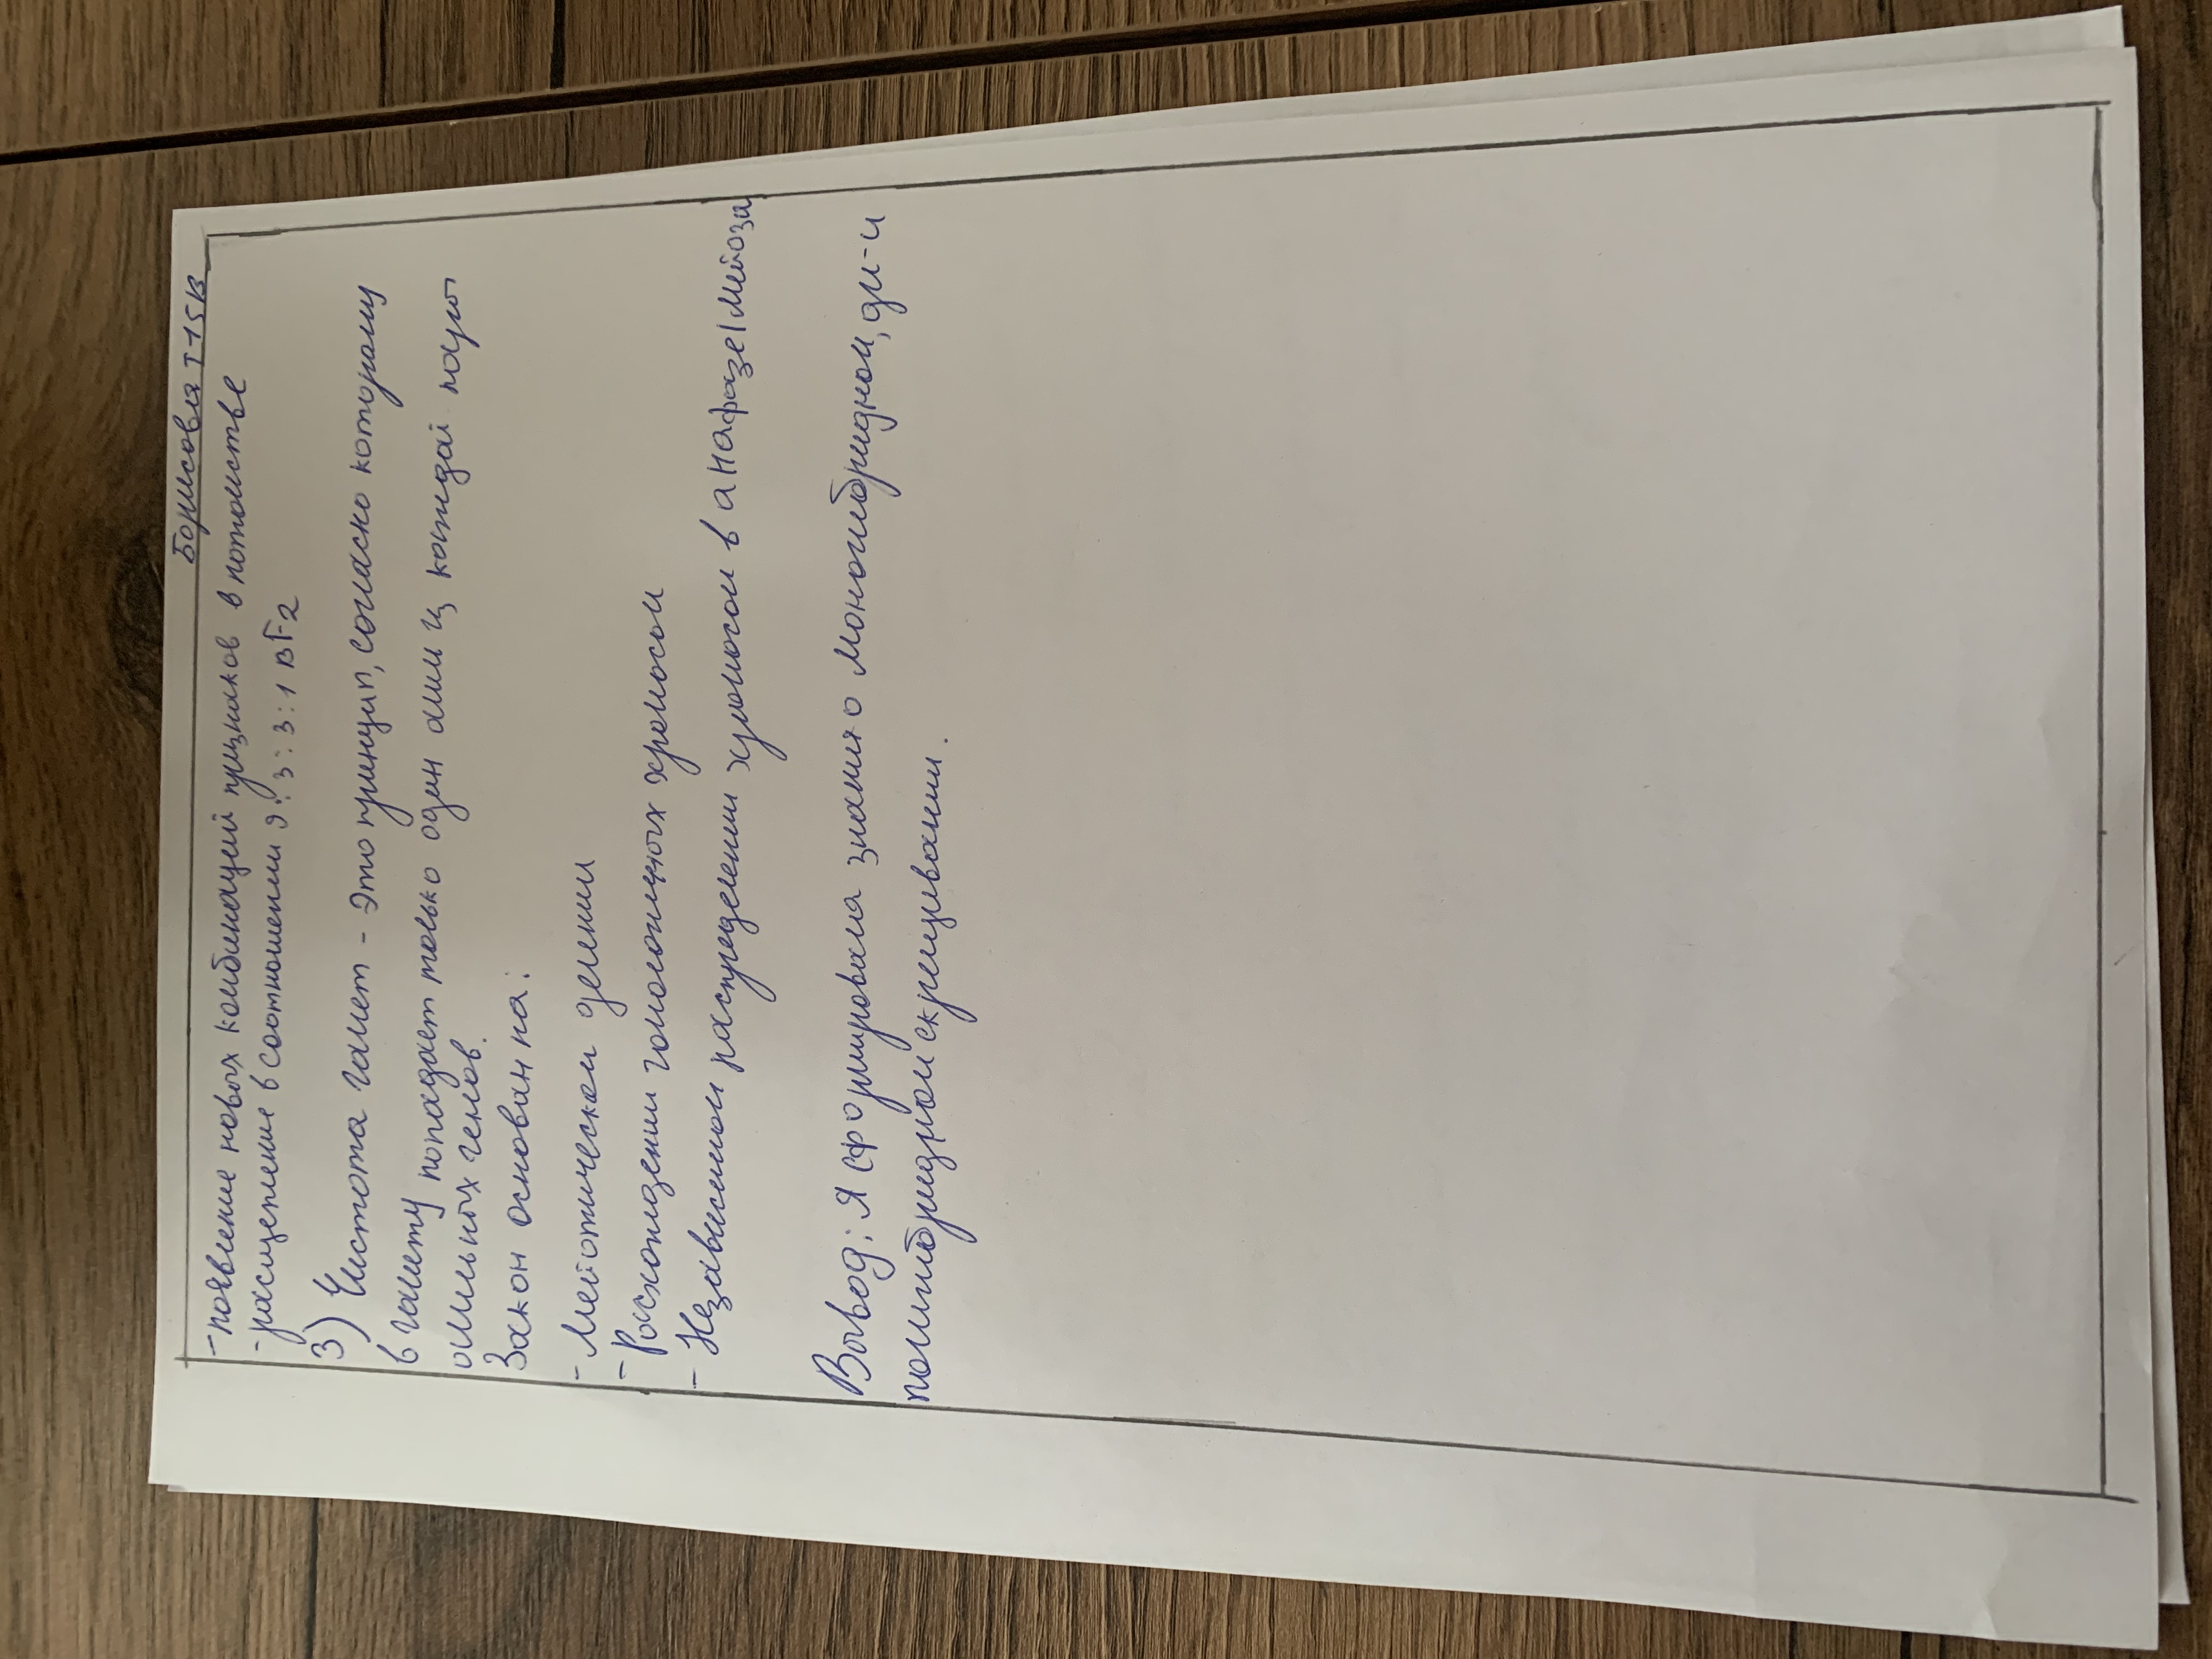 Борисова Т-15В
- появление новых комбинаций признаков в потомстве
- расщепление в соотношении 9:3:3:1 в F2
3) Чистота гамет - это принцип, согласно которому
в гамету попадает только один алли из каждой пары
аллильных генов.
Закон основан на:
- Мейотическом делении
- Расхождении гомологичных хромосом
- Независимом распределении хромосом в анафазе I мейоза
Вывод: Я сформировала знания о моногибридном, ди- и
полигибридном скрещивании.